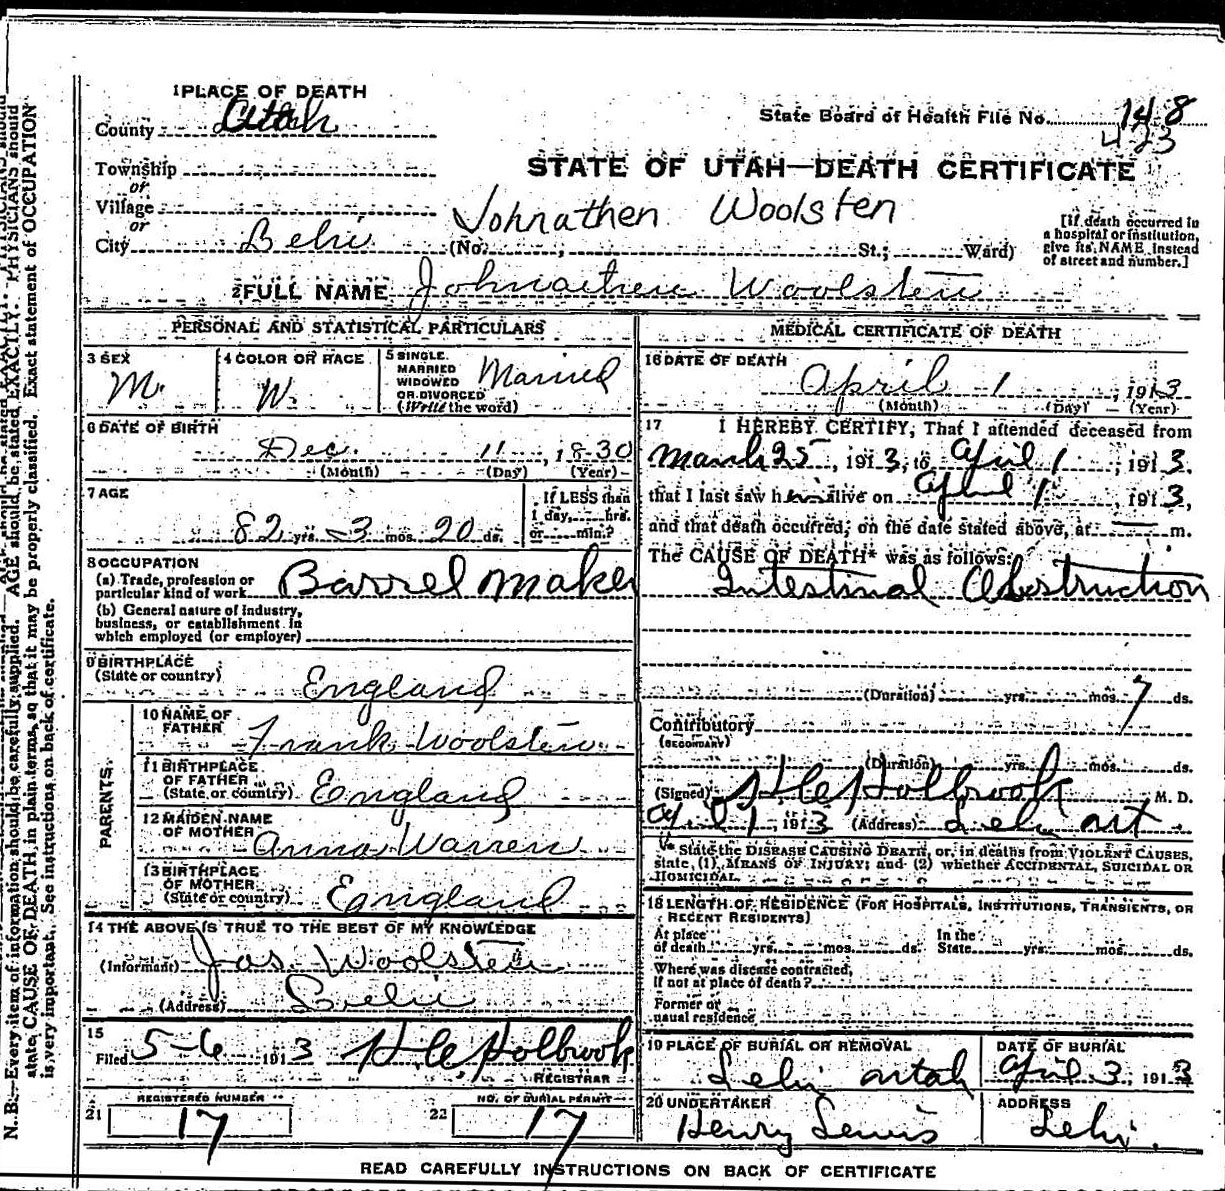 1 PLACE OF DEATH
County Utah
State Board of Health File No. 148
423
Township
or
STATE OF UTAH—DEATH CERTIFICATE
Village
or
Johnathen Woolsten
City Lehi (No. , St.; Ward)
[If death occurred in
a hospital or institution,
give its NAME instead
of street and number.]
2 FULL NAME Johnathen Woolsten
PERSONAL AND STATISTICAL PARTICULARS
3 SEX
M.
4 COLOR OR RACE
W.
5 SINGLE.
MARRIED
WIDOWED
OR DIVORCED
(Write the word)
Married
6 DATE OF BIRTH
Dec. 11, 1830
(Month) (Day) (Year)
7 AGE
82 yrs. 3 mos. 20 ds.
If LESS than
1 day, hrs.
or min.?
8 OCCUPATION
(a) Trade, profession or
particular kind of work Barrel Maker
(b) General nature of industry,
business, or establishment in
which employed (or employer)
9 BIRTHPLACE
(State or country)
England
PARENTS.
10 NAME OF
FATHER Frank Woolsten
11 BIRTHPLACE
OF FATHER
(State or country) England
12 MAIDEN NAME
OF MOTHER Anna Warren
13 BIRTHPLACE
OF MOTHER
(State or country) England
14 THE ABOVE IS TRUE TO THE BEST OF MY KNOWLEDGE
(Informant) Jas. Woolsten
(Address) Lehi
15
Filed 5-6 1913 H. C. Holbrook
REGISTRAR
REGISTERED NUMBER
21 17
NO. OF BURIAL PERMIT
22 17
MEDICAL CERTIFICATE OF DEATH
16 DATE OF DEATH
April 1, 1913
(Month) (Day) (Year)
17 I HEREBY CERTIFY, That I attended deceased from
March 25, 1913, to April 1, 1913.
that I last saw him alive on April 1, 1913,
and that death occurred, on the date stated above, at m.
The CAUSE OF DEATH* was as follows:
Intestinal Obstruction
(Duration) yrs. mos. 7 ds.
Contributory
(SECONDARY)
(Duration) yrs. mos. ds.
(Signed) H. C. Holbrook M. D.
Apl 1, 1913 (Address) Lehi
* State the DISEASE CAUSING DEATH, or, in deaths from VIOLENT CAUSES,
state, (1), MEANS OF INJURY; and (2) whether ACCIDENTAL, SUICIDAL OR
HOMICIDAL.
18 LENGTH OF RESIDENCE (FOR HOSPITALS, INSTITUTIONS, TRANSIENTS, OR
RECENT RESIDENTS)
At place
of death yrs. mos. ds.
In the
State yrs. mos. ds.
Where was disease contracted,
if not at place of death?
Former or
usual residence
19 PLACE OF BURIAL OR REMOVAL
Lehi Utah
DATE OF BURIAL
April 3, 1913
20 UNDERTAKER
Henry Lewis
ADDRESS
Lehi.
READ CAREFULLY INSTRUCTIONS ON BACK OF CERTIFICATE
N. B.—Every item of information should be carefully supplied. AGE should be stated EXACTLY. PHYSICIANS should
state CAUSE OF DEATH in plain terms, so that it may be properly classified. Exact statement of OCCUPATION
is very important. See instructions on back of certificate.